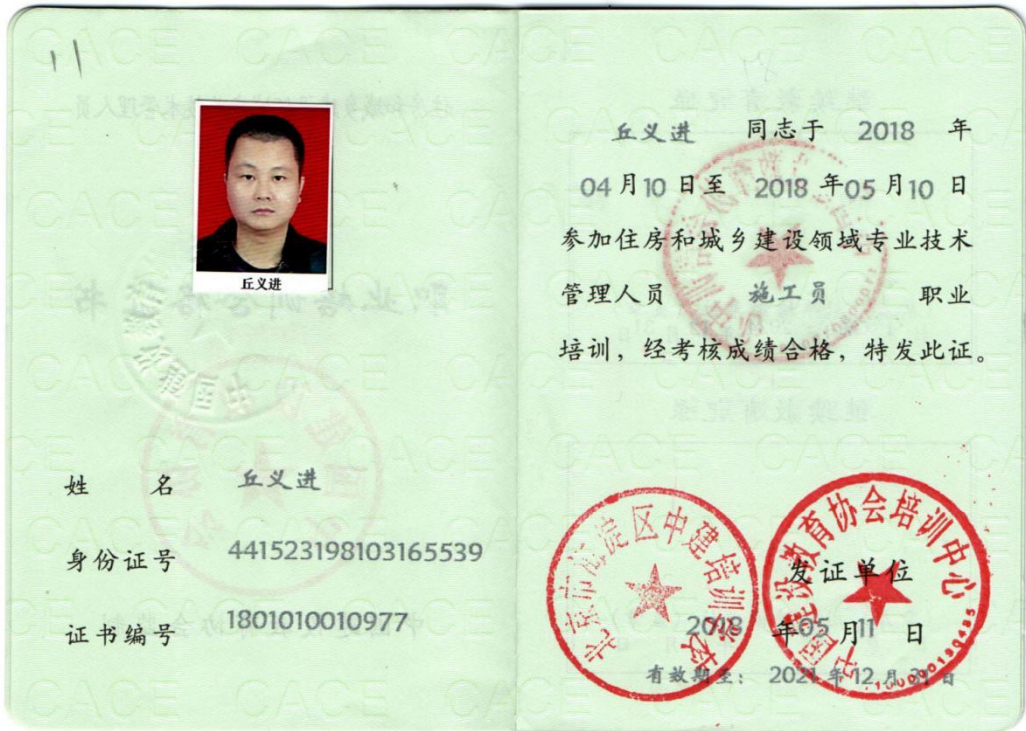 11
丘义进
姓 名 丘义进
身份证号 441523198103165539
证书编号 1801010010977
丘义进 同志于 2018 年
04月10日至 2018年05月10日
参加住房和城乡建设领域专业技术
管理人员 施工员 职业
培训，经考核成绩合格，特发此证。
北京市海淀区中建培训学校
中国建设教育协会培训中心
发证单位
2018 年05月11日
有效期至： 2021年12月31日